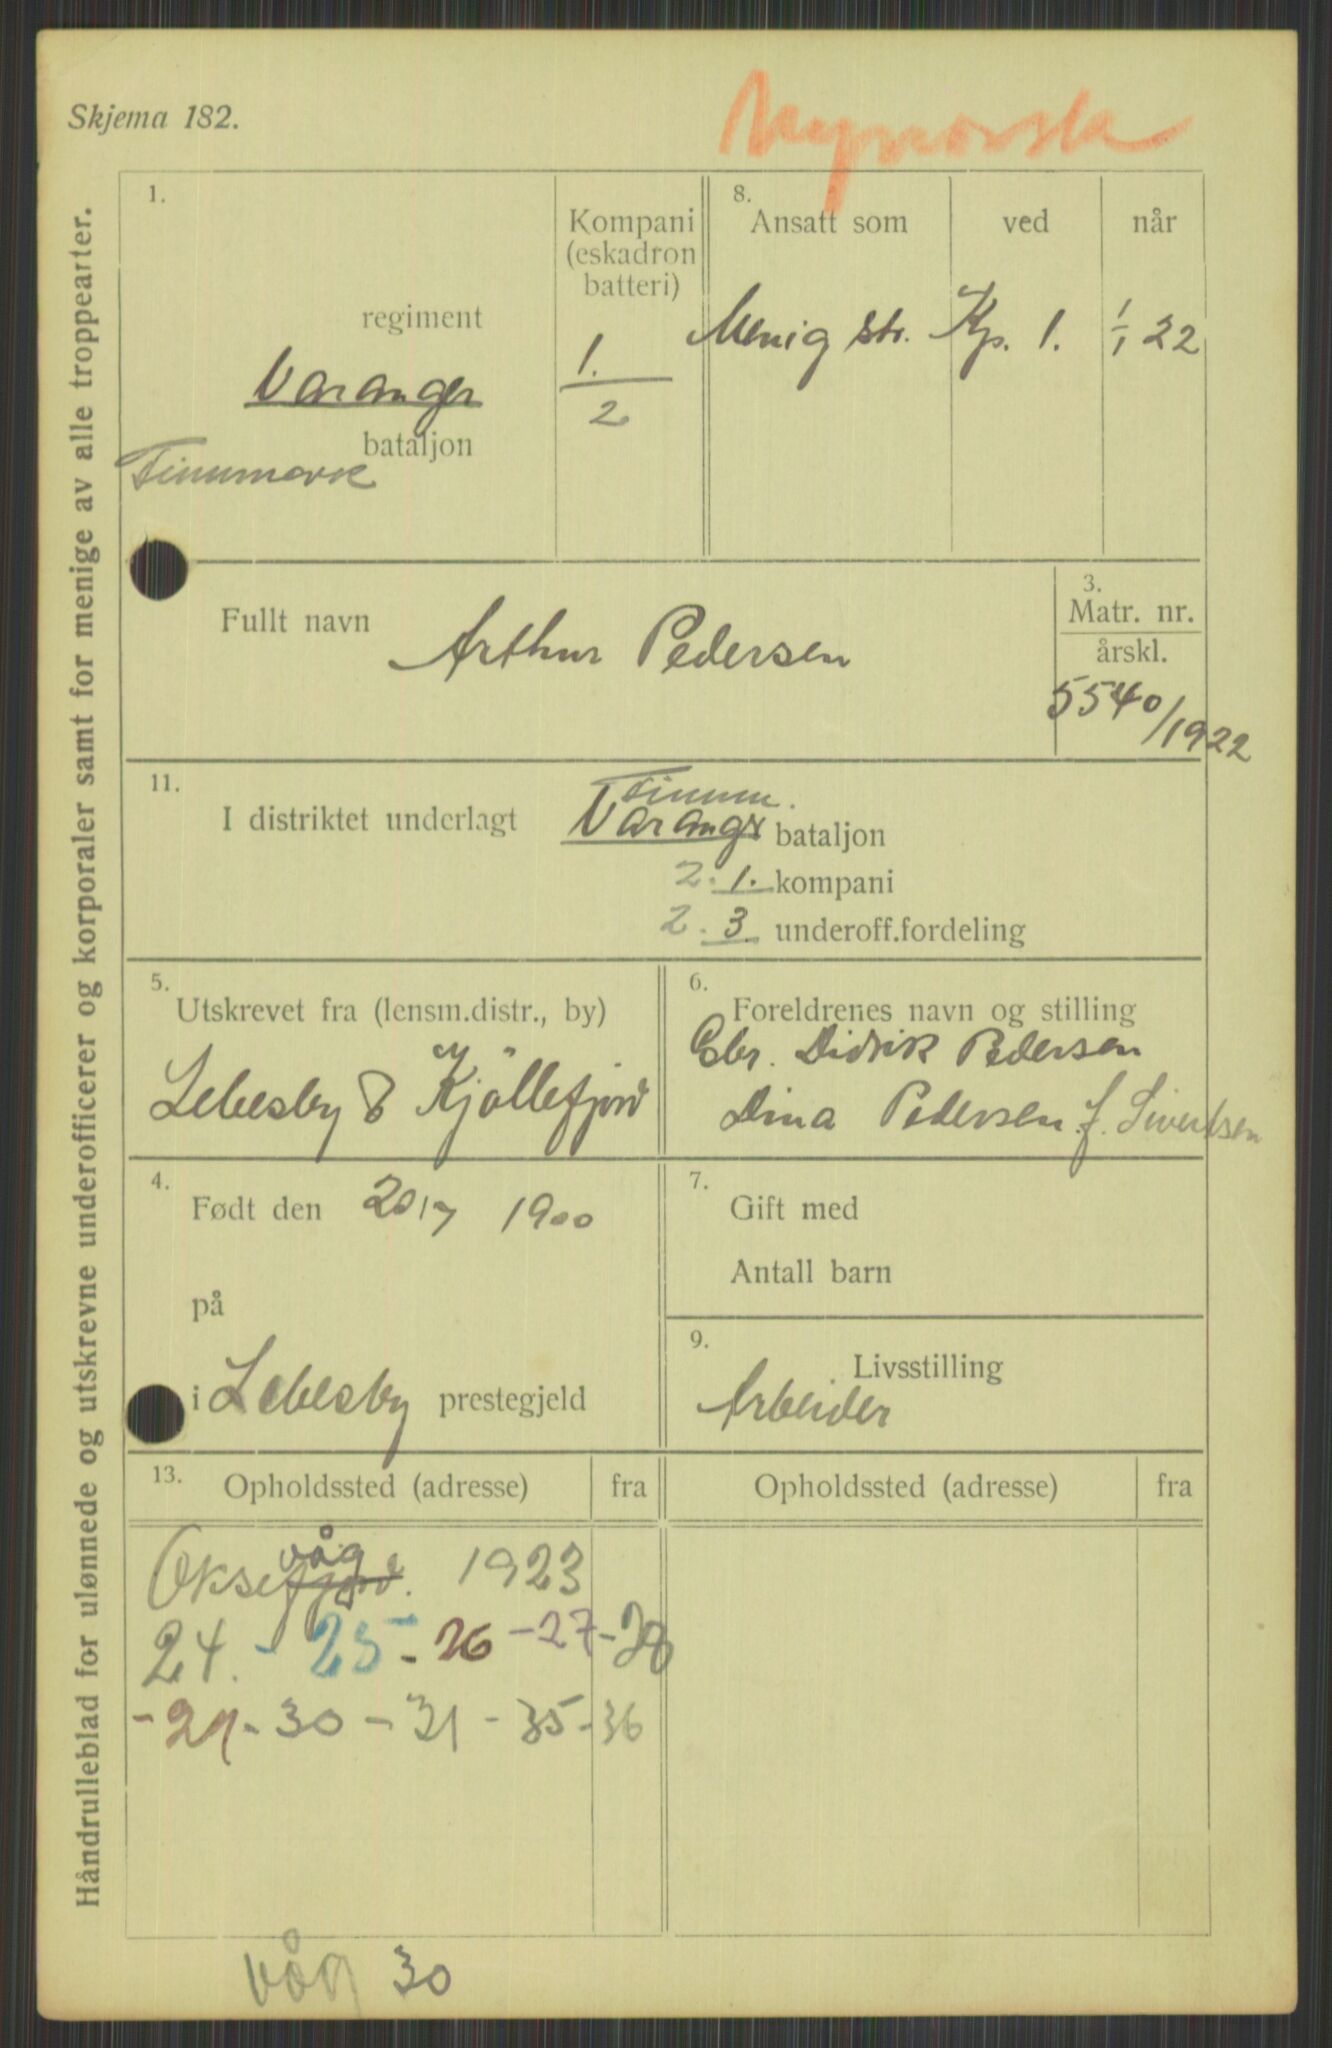 Skjema 182.
Håndrulleblad for ulønnede og utskrevne underofficerer og korporaler samt for menige av alle troppearter.
1.
regiment
Varanger
bataljon
Finnmark
Kompani
(eskadron
batteri)
1.
2
8.
Ansatt som
ved
når
Menig str. Kp. 1. 1/1 22
Fullt navn
Arthur Pedersen
3.
Matr. nr.
årskl.
5540/1922
11.
Finnm.
I distriktet underlagt Varanger bataljon
2. 1. kompani
2. 3 underoff.fordeling
5.
Utskrevet fra (lensm.distr., by)
Lebesby & Kjöllefjord
6.
Foreldrenes navn og stilling
Gbr. Didrik Pedersen
Dina Pedersen f. Sivertsen
4.
Født den 20/7 1900
på
i Lebesby prestegjeld
7.
Gift med
Antall barn
9.
Livsstilling
Arbeider
13.
Opholdssted (adresse) fra
Opholdssted (adresse) fra
våg
Oksefjord. 1923
24. - 25 - 26 - 27 - 28
- 29 - 30 - 31 - 35 - 36
våg 30